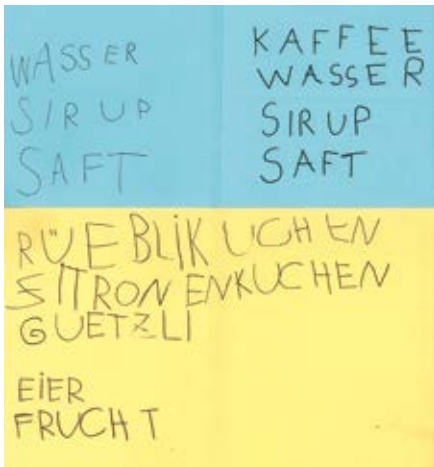 WASSER
SIRUP
SAFT
KAFFEE
WASSER
SIRUP
SAFT
RÜEBLIKUCHEN
ZITRONENKUCHEN
GUETZLI
EIER
FRUCHT